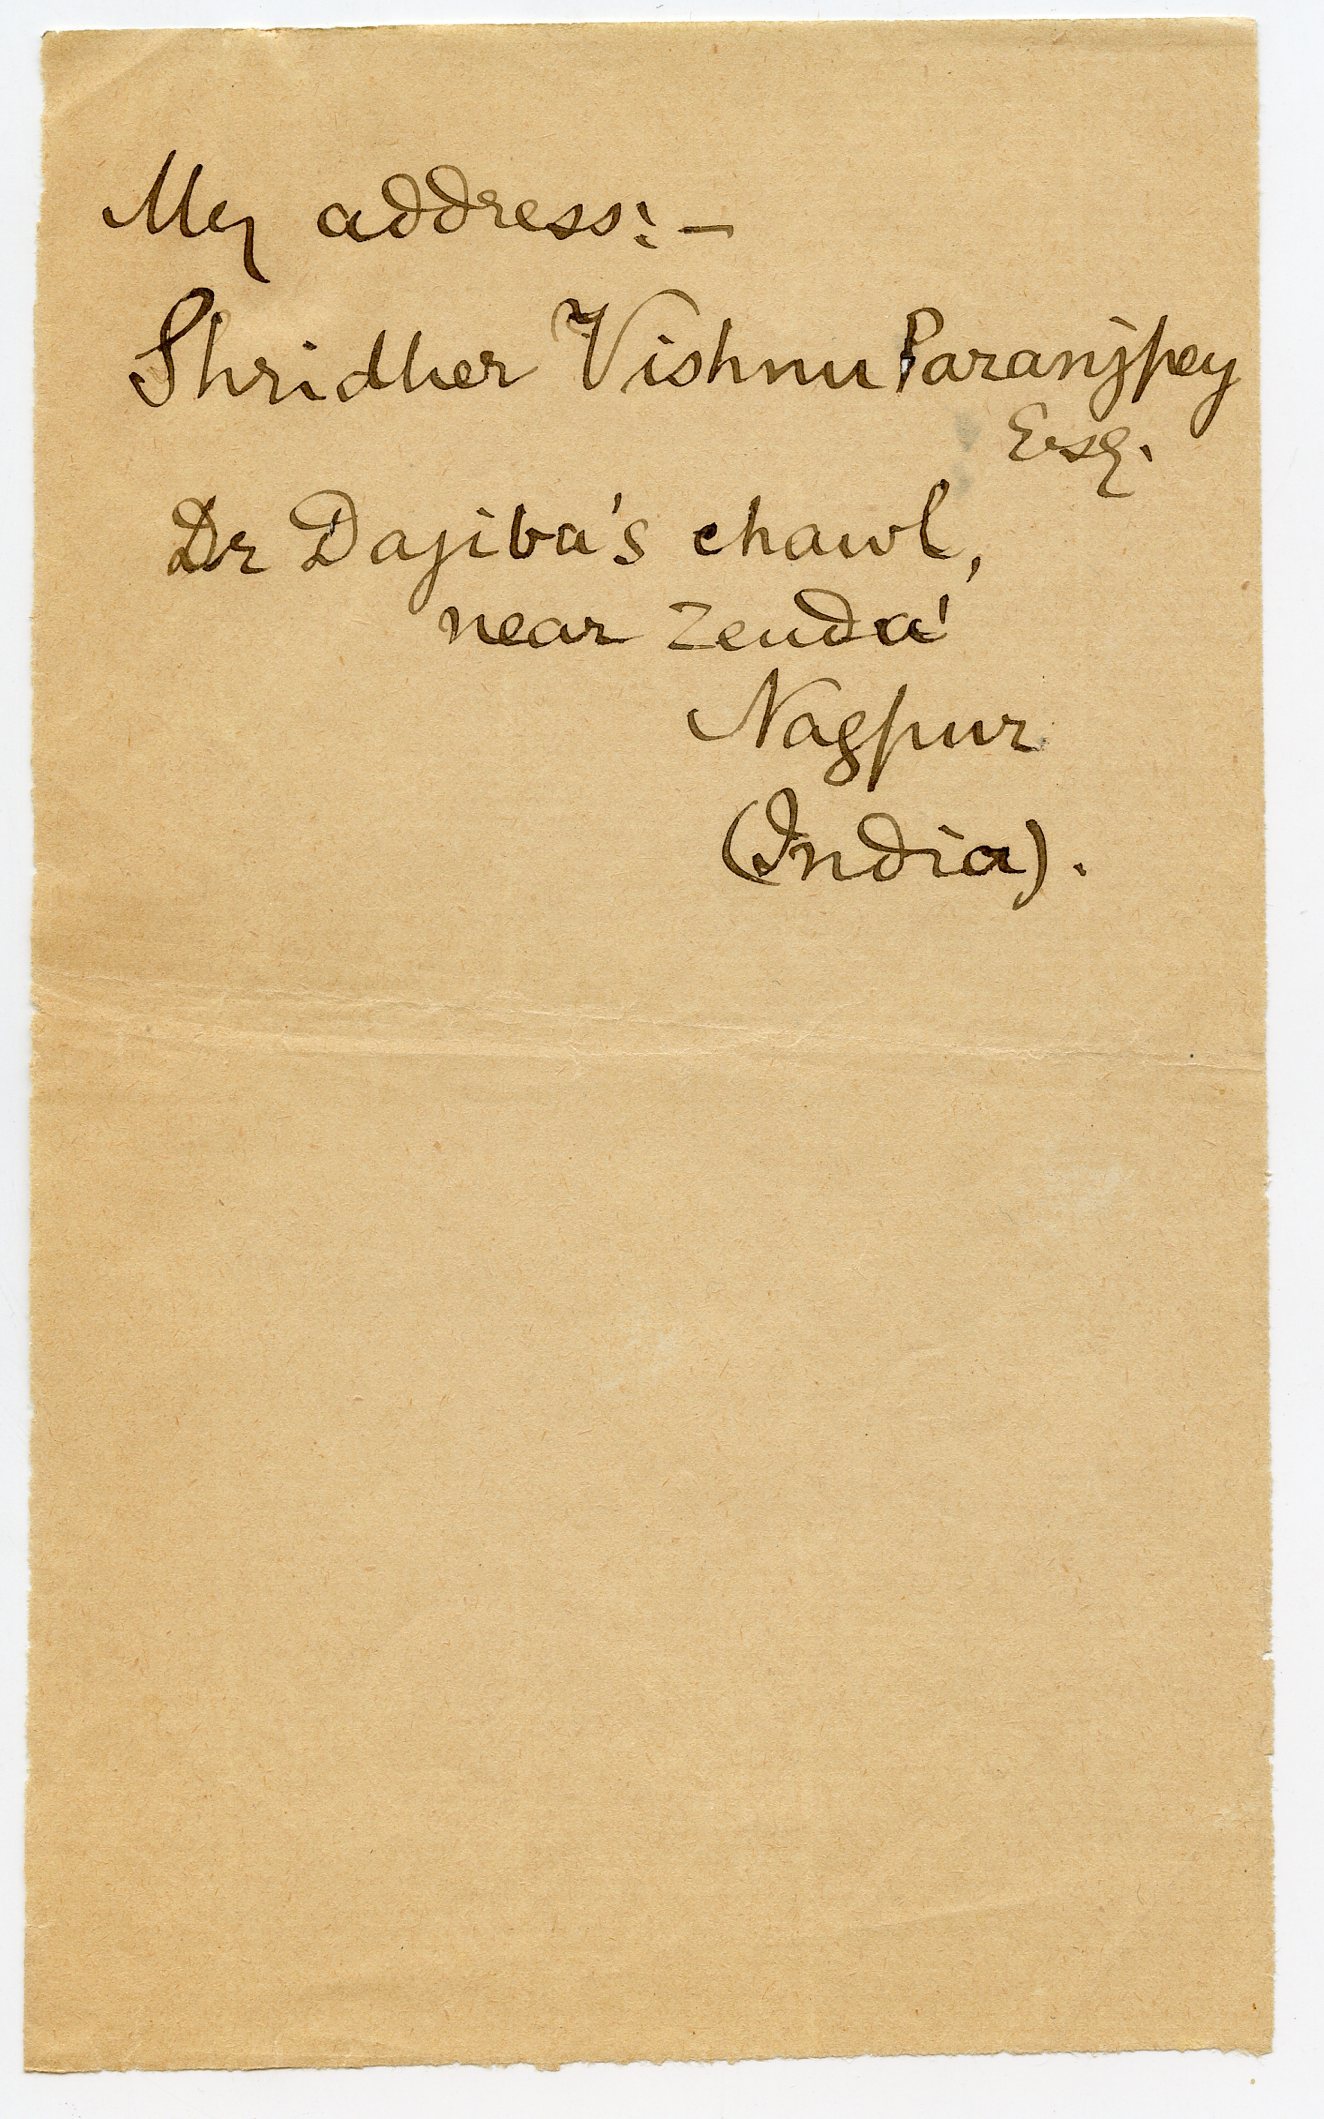 My address:-
Shridher Vishnu Paranjpey
Esq.
Dr Dajiba's chawl,
near Zenda'
Nagpur
(India).